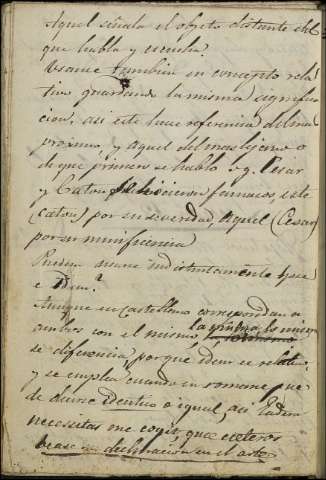 Aquel señala el objeto distante del
que habla y escucha.
Usanse tambien en concepto rela-
tivo guardando la misma significa-
cion, asi este hace referencia del mas
proximo, y aquel del mas lejano o
de que primero se hablo v.g. Cesar
y Caton se hicieron famosos, este
(Caton) por su severidad, aquel (Cesar)
por su munificencia
Pueden usarse indistintamente Ipse
e Idem?
Aunque en Castellano correspondan a
ambos con el mismo, la misma, lo mismo
se diferencia, porque idem es relativo
y se emplea cuando en romance pue-
de decirse identico o igual, asi Eadem
necessitas me cogit, que ceteros
vease su declinacion en el arte